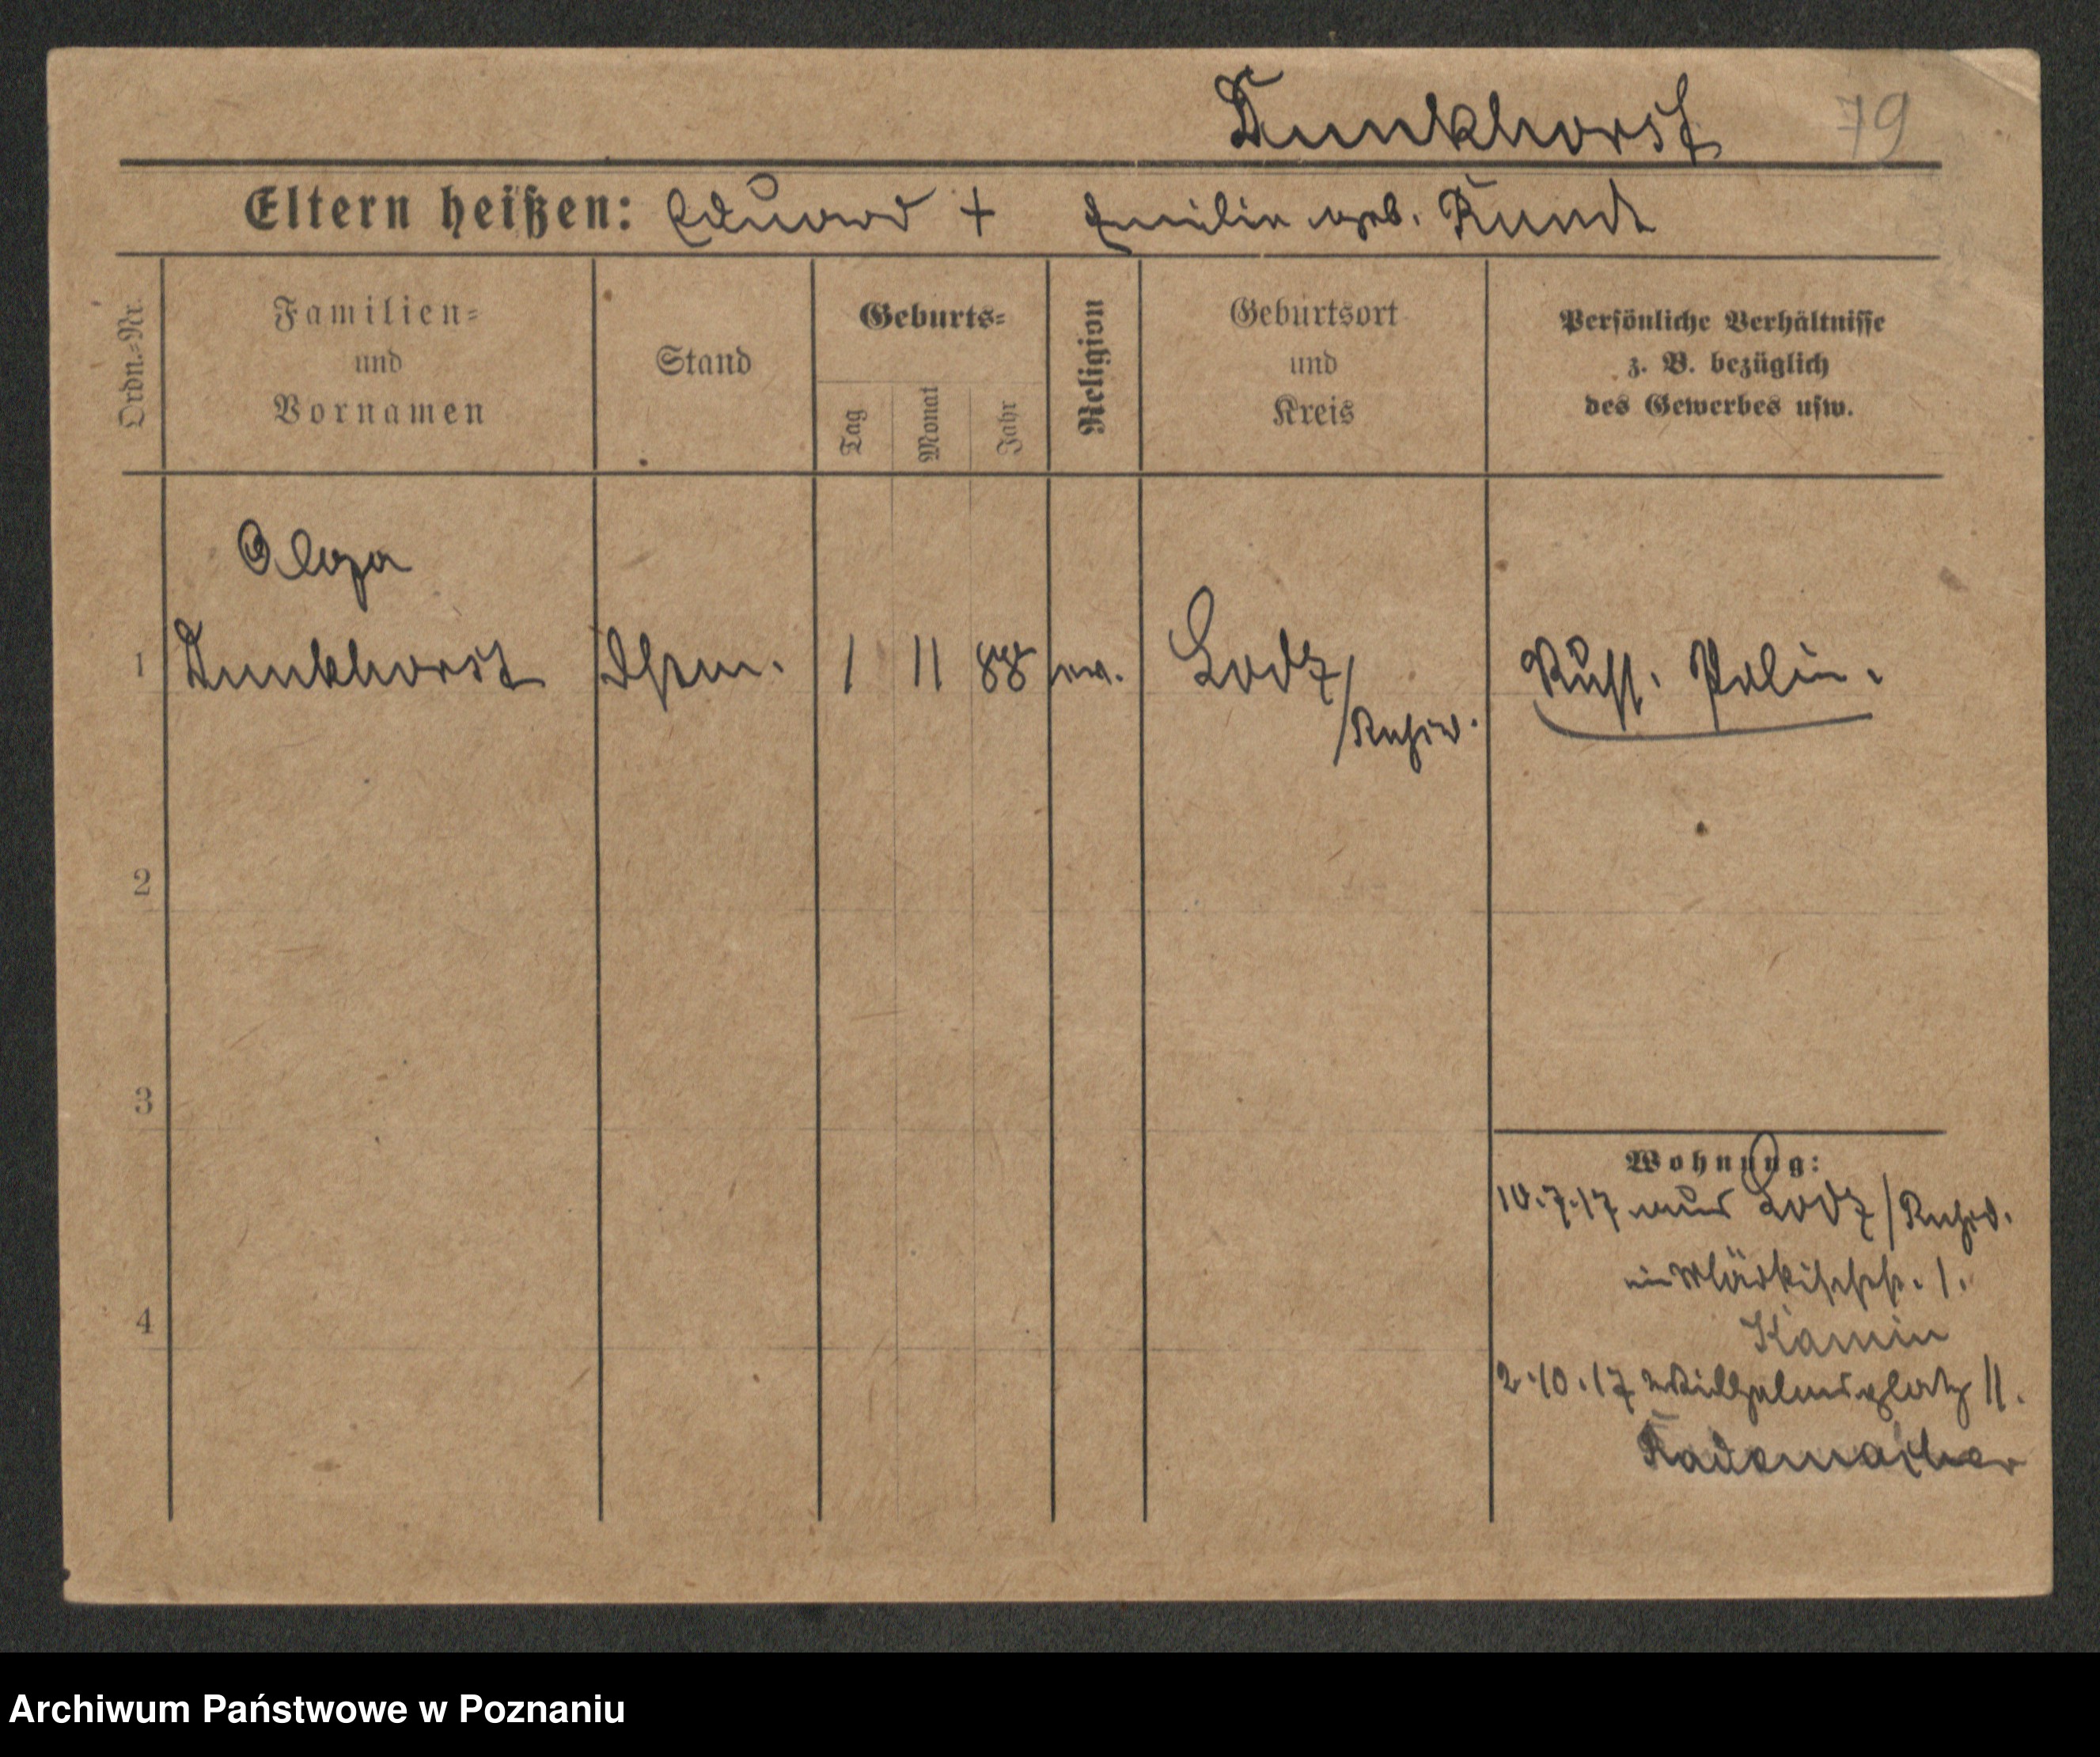 Dunkhorst 79
Eltern heißen: Eduard + Emilie geb. Kunde
Ordn.-Nr.
Familien-
und
Vornamen
Stand
Geburts-
Tag
Monat
Jahr
Religion
Geburtsort
und
Kreis
Persönliche Verhältnisse
z. B. bezüglich
des Gewerbes usw.
Olga
1 Dunkhorst 1 11 88 ev. Lodz/
Russ. Polin.
2
3
4
Wohnung:
10.7.17 aus Lodz/
in Märkischestr. 1.
Kamin
2.10.17 Wilhelmsplatz 11.
Rademacher
Archiwum Państwowe w Poznaniu